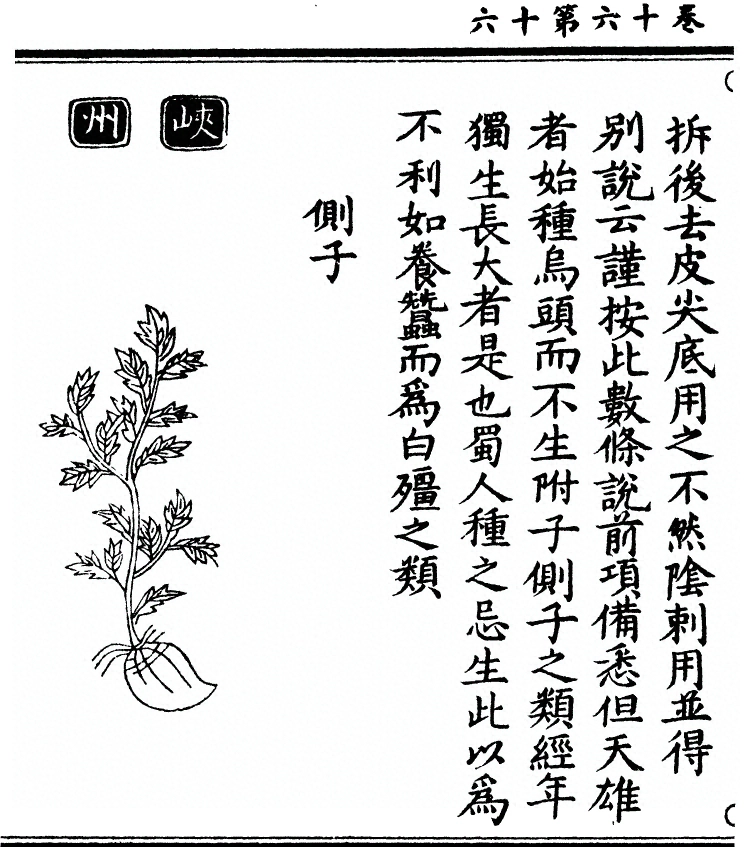 卷十六第十六
拆後去皮尖底用之不然陰剌用並得
別說云謹按此數條說前項備悉但天雄
者始種烏頭而不生附子側子之類經年
獨生長大者是也蜀人種之忌生此以為
不利如養蠶而為白殭之類
側子
峽州